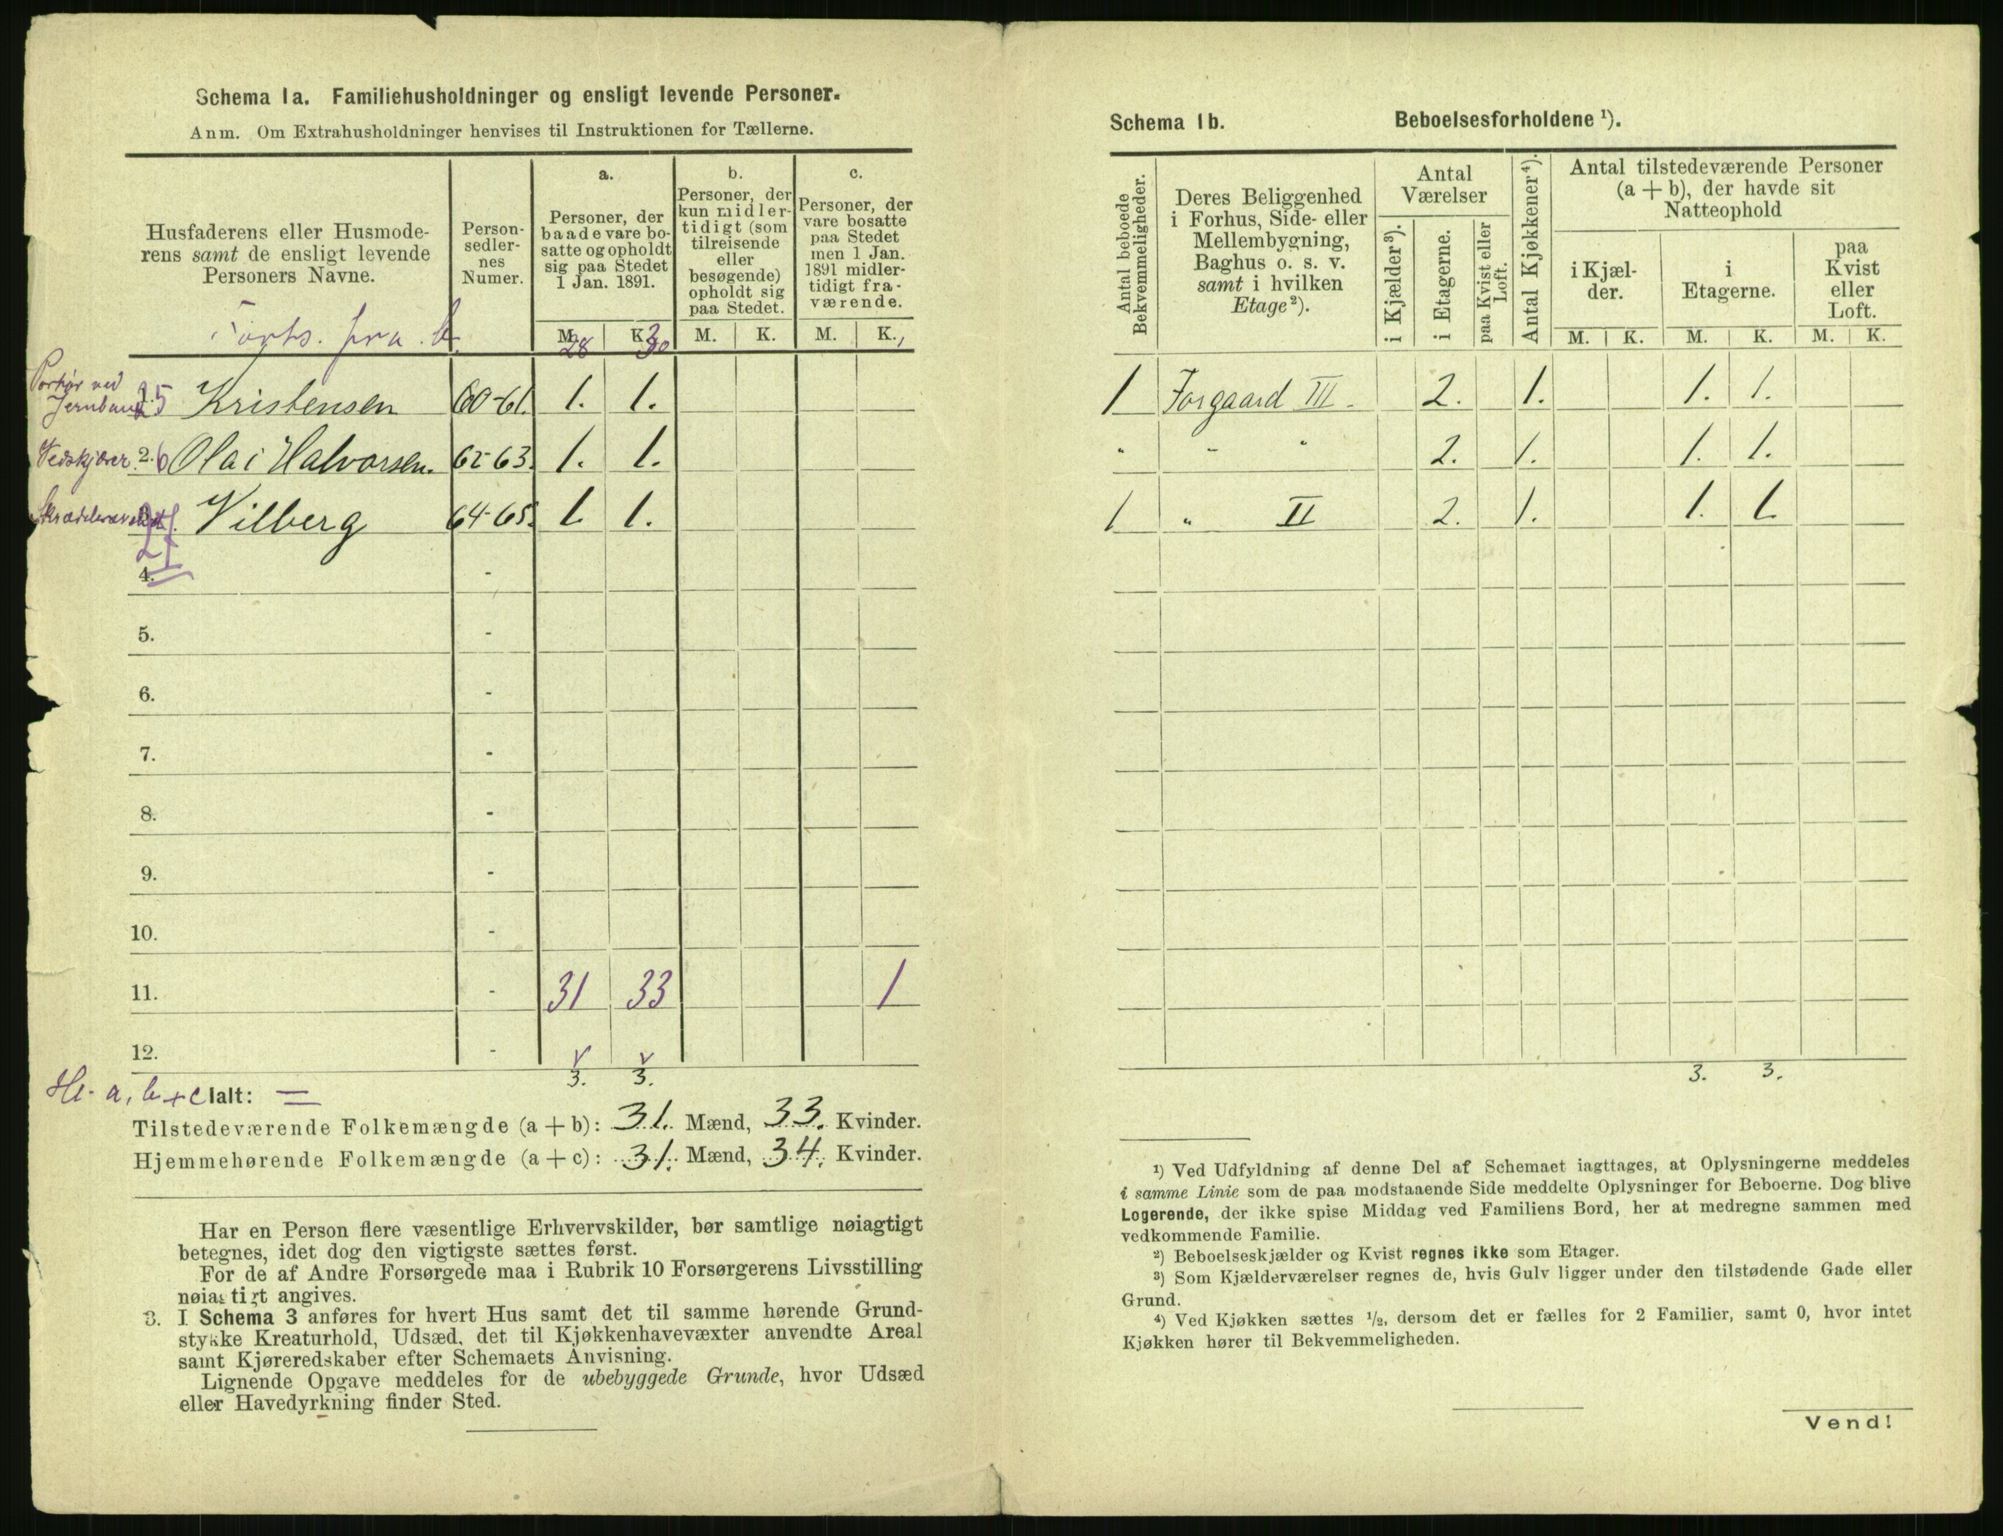 Schema 1a. Familiehusholdninger og ensligt levende Personer.
Anm. Om Extrahusholdninger henvises til Instruktionen for Tællerne.
Husfaderens eller Husmode-
rens samt de ensligt levende
Personers Navne.
Forts. fra b.
Person-
sedler-
nes
Numer.
a.
Personer, der
baade vare bo-
satte og opholdt
sig paa Stedet
1 Jan. 1891.
b.
Personer, der
kun midler-
tidigt (som
tilreisende
eller
besøgende)
opholdt sig
paa Stedet.
c.
Personer, der
vare bosatte
paa Stedet
men 1 Jan.
1891 midler-
tidigt fra-
værende.
M. K. M. K. M. K.
28 30 1
Portør ved
Jernban 25 Kristensen 60-61. 1. 1.
Vedskjærer 2.6 Olai Halvorsen. 62-63. 1. 1.
27 Vilberg 64-65. 1. 1.
4. -
5. -
6. -
7. -
8. -
9. -
10. -
11. - 31 33 1
12. -
3. 3.
a, b + c Ialt: =
Tilstedeværende Folkemængde (a + b): 31. Mænd, 33. Kvinder.
Hjemmehørende Folkemængde (a + c): 31. Mænd, 34. Kvinder.
Har en Person flere væsentlige Erhvervskilder, bør samtlige nøiagtigt
betegnes, idet dog den vigtigste sættes først.
For de af Andre Forsørgede maa i Rubrik 10 Forsørgerens Livsstilling
nøiagtigt angives.
3. I Schema 3 anføres for hvert Hus samt det til samme hørende Grund-
stykke Kreaturhold, Udsæd, det til Kjøkkenhavevæxter anvendte Areal
samt Kjøreredskaber efter Schemaets Anvisning.
Lignende Opgave meddeles for de ubebyggede Grunde, hvor Udsæd
eller Havedyrkning finder Sted.
Schema 1b. Beboelsesforholdene ¹).
Antal beboede
Bekvemmeligheder.
Deres Beliggenhed
i Forhus, Side- eller
Mellembygning,
Baghus o. s. v.
samt i hvilken
Etage ²).
Antal
Værelser
i Kjælder ³).
i Etagerne.
paa Kvist eller
Loft.
Antal Kjøkkener ⁴).
Antal tilstedeværende Personer
(a + b), der havde sit
Natteophold
i Kjæl-
der.
i
Etagerne.
paa
Kvist
eller
Loft.
M. K. M. K. M. K.
1 Forgaard III. 2. 1. 1. 1.
" " " 2. 1. 1. 1.
1 " II 2. 1. 1. 1.
3. 3.
¹) Ved Udfyldning af denne Del af Schemaet iagttages, at Oplysningerne meddeles
i samme Linie som de paa modstaaende Side meddelte Oplysninger for Beboerne. Dog blive
Logerende, der ikke spise Middag ved Familiens Bord, her at medregne sammen med
vedkommende Familie.
²) Beboelseskjælder og Kvist regnes ikke som Etager.
³) Som Kjælderværelser regnes de, hvis Gulv ligger under den tilstødende Gade eller
Grund.
⁴) Ved Kjøkken sættes ½, dersom det er fælles for 2 Familier, samt 0, hvor intet
Kjøkken hører til Bekvemmeligheden.
Vend!